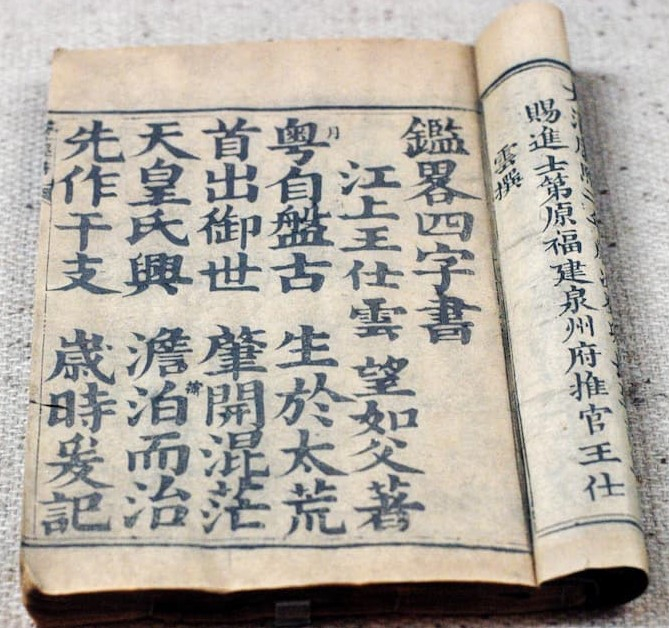 賜進士第原福建泉州府推官王仕
雲撰
鑑畧四字書
江上王仕雲 望如父著
粤自盤古 生於太荒
首出御世 肇開混茫
天皇氏興 澹泊而治
先作干支 歳時爰記